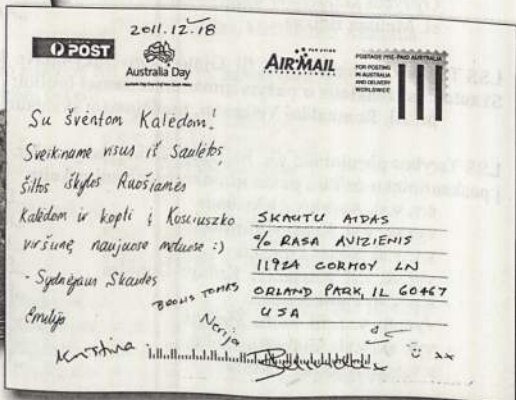 2011.12.18
POST
Australia Day
PAR AVION
AIRMAIL
INTERNATIONAL
POSTAGE PRE-PAID AUSTRALIA
FOR POSTING
IN AUSTRALIA
AND DELIVERY
WORLDWIDE
Su šventom Kalėdom!
Sveikiname visus iš Saulėtos,
šiltos iškylos Ruošiamės
Kalėdom ir kopti į Kosciuszko
viršunę naujuose metuose :)
- Sydnėjaus Skautės
Emilija
Kristina
TOMAS
Nerija
SKAUTU AIDAS
c/o RASA AVIZIENIS
11924 CORMOY LN
ORLAND PARK, IL 60467
USA
xx